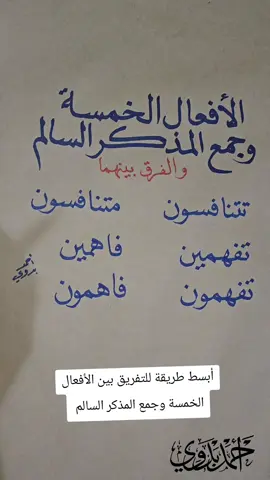 الأفعال الخمسة
وجمع المذكر السالم
والفرق بينهما
تتنافسون متنافسون
تفهمين فاهمين
تفهمون فاهمون
أحمد بدوي
أبسط طريقة للتفريق بين الأفعال
الخمسة وجمع المذكر السالم
أحمد بدوي